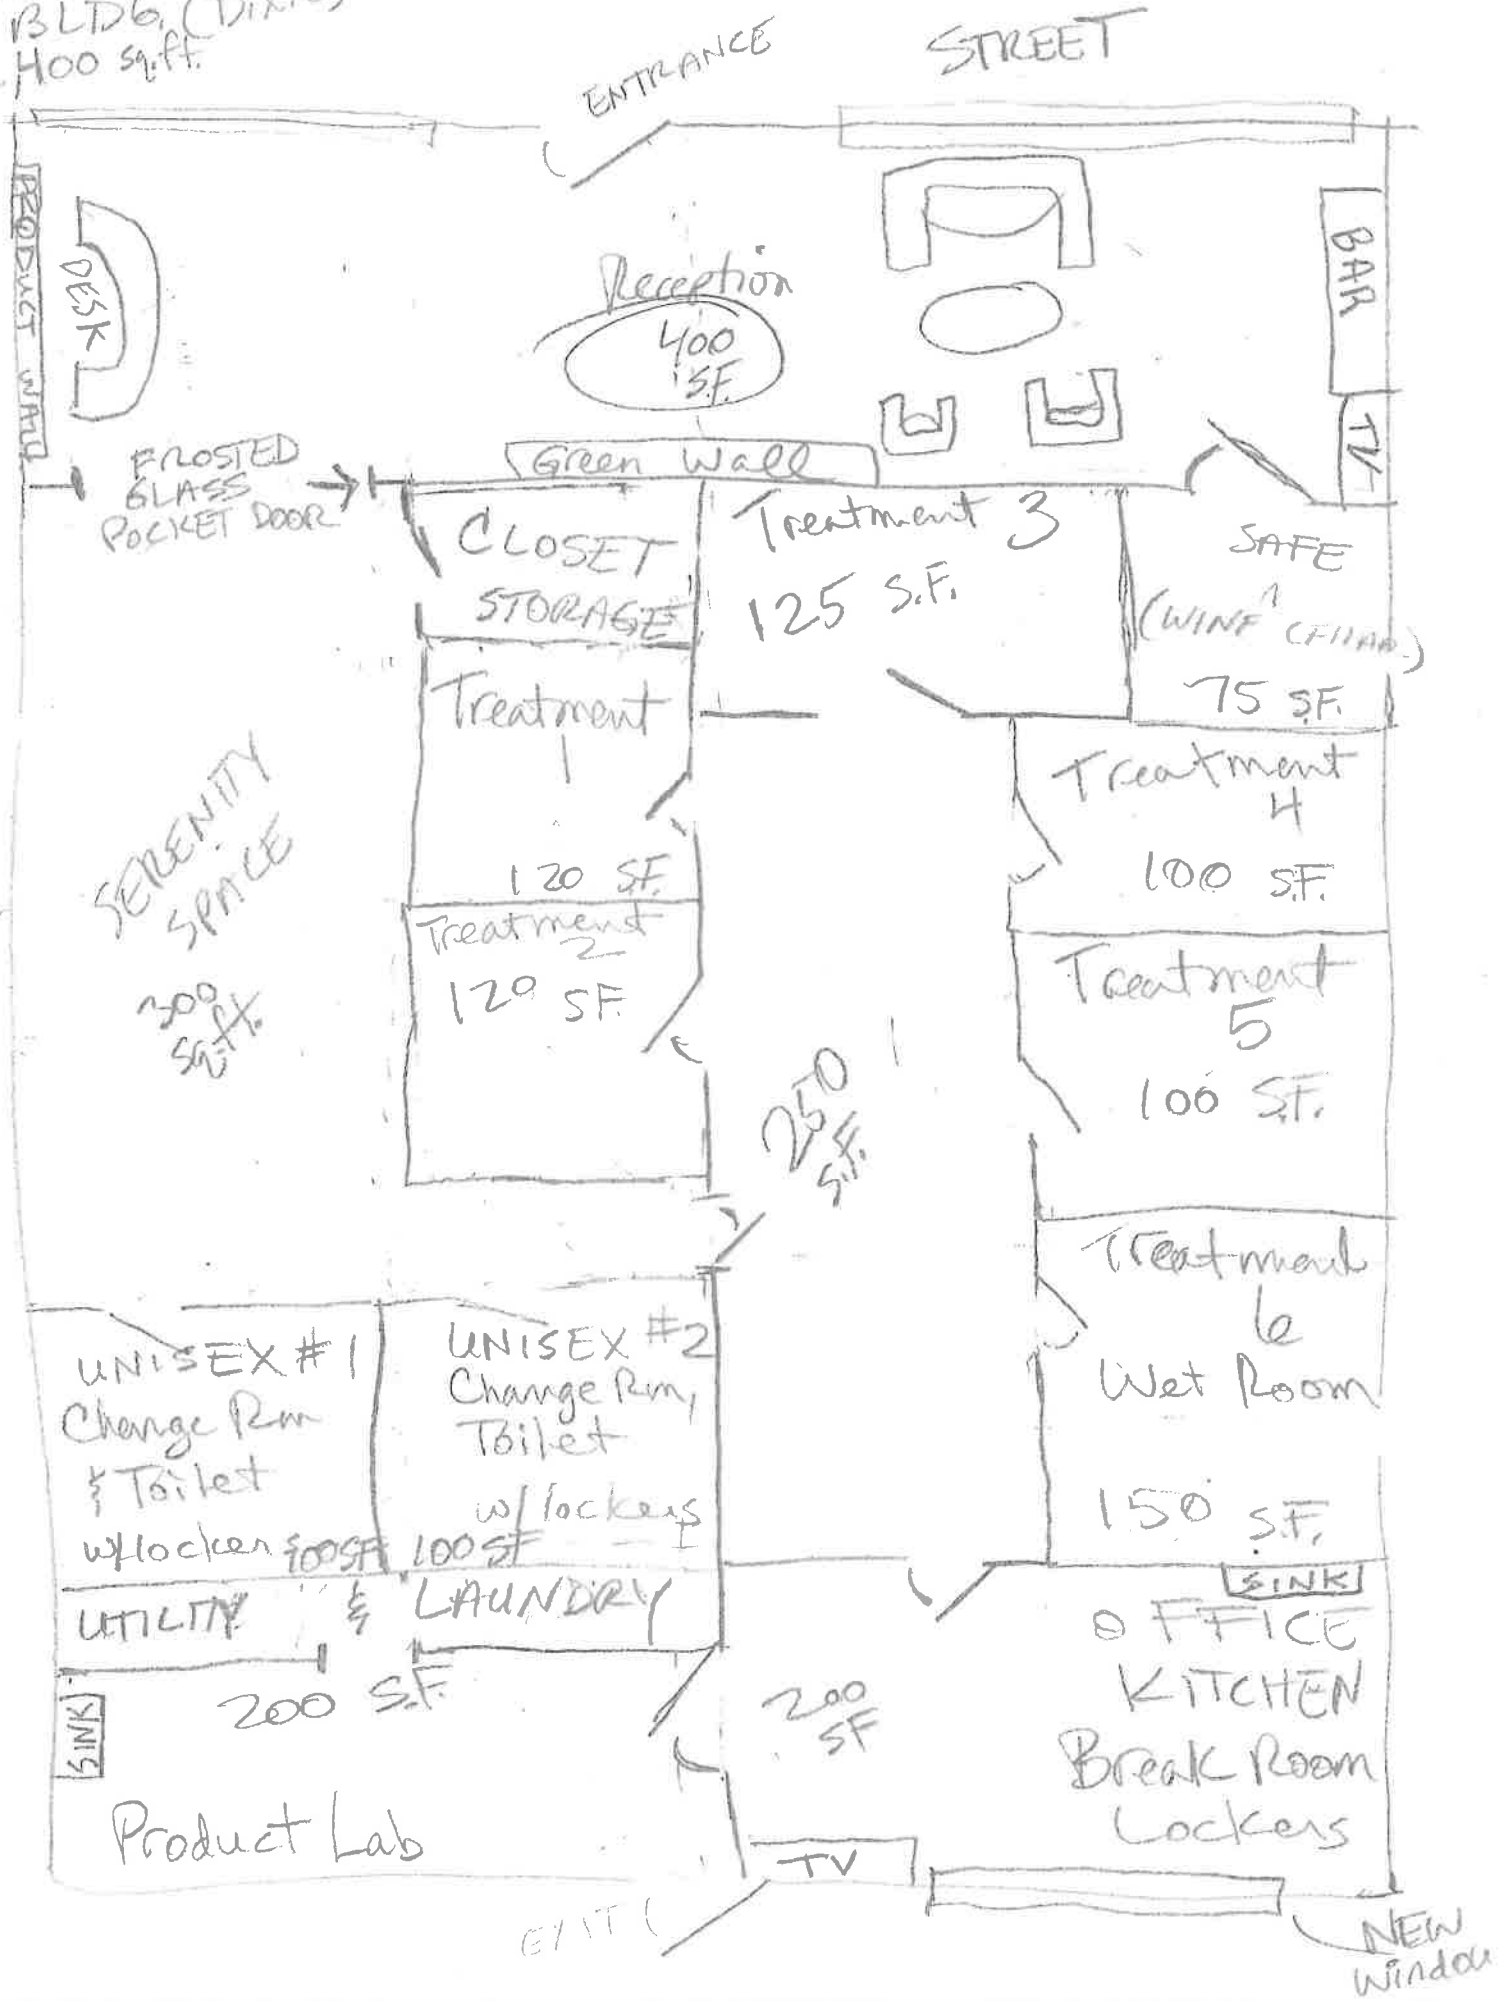 BLDG.
400 sq.ft.
ENTRANCE
STREET
PRODUCT WALL
DESK
Reception
400
S.F.
BAR
TV
FROSTED
GLASS
POCKET DOOR
Green Wall
CLOSET
STORAGE
Treatment 3
125 S.F.
SAFE
(WINE CELLAR)
75 S.F.
Treatment
1
120 S.F.
Treatment
4
100 S.F.
SERENITY
SPACE
300
sq.ft.
Treatment
2
120 S.F.
Treatment
5
100 S.F.
250
S.F.
Treatment
6
Wet Room
150 S.F.
UNISEX #1
Change Rm
& Toilet
w/locker
100SF
UNISEX #2
Change Rm,
Toilet
w/lockers
100SF
UTILITY & LAUNDRY
SINK
200 S.F.
Product Lab
200
SF
SINK
OFFICE
KITCHEN
Break Room
Lockers
TV
EXIT
NEW
Window